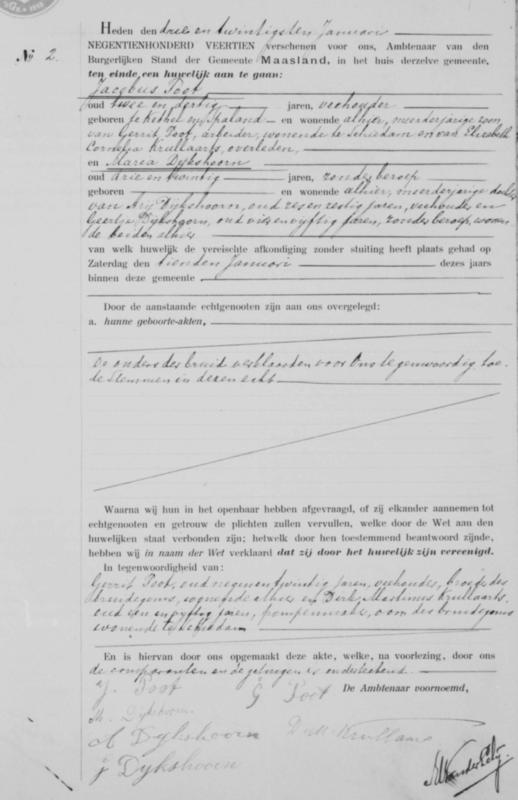 № 2.
Heden den drie en twintigsten Januari
NEGENTIENHONDERD VEERTIEN verschenen voor ons, Ambtenaar van den
Burgerlijken Stand der Gemeente Maasland, in het huis derzelve gemeente,
ten einde een huwelijk aan te gaan:
Jacobus Poot
oud twee en dertig jaren, veehouder
geboren te Kethel en Spaland en wonende alhier, meerderjarige zoon
van Gerrit Poot, arbeider, wonende te Schiedam en van Elizabeth
Cornelia Krullaarts, overleden,
en Maria Dijkshoorn
oud drie en twintig jaren, zonder beroep
geboren en wonende alhier, meerderjarige dochter
van Arij Dijkshoorn, oud zes en zestig jaren, veehouder en
Geertje Dijkshoorn, oud vijf en vijftig jaren, zonder beroep, wonen
de beiden alhier
van welk huwelijk de vereischte afkondiging zonder stuiting heeft plaats gehad op
Zaterdag den tienden Januari dezes jaars
binnen deze gemeente
Door de aanstaande echtgenooten zijn aan ons overgelegd:
a. hunne geboorte-akten,
De ouders des bruid verklaarden voor Ons tegenwoordig toe
te stemmen in dezen echt
Waarna wij hun in het openbaar hebben afgevraagd, of zij elkander aannemen tot
echtgenooten en getrouw de plichten zullen vervullen, welke door de Wet aan den
huwelijken staat verbonden zijn; hetwelk door hen toestemmend beantwoord zijnde,
hebben wij in naam der Wet verklaard dat zij door het huwelijk zijn vereenigd.
In tegenwoordigheid van:
Gerrit Poot, oud negen en twintig jaren, veehouder, broeder des
bruidegoms, wonende alhier en Dirk Martinus Krullaarts,
oud een en vijftig jaren, pompenmaker, oom des bruidegoms
wonende te Schiedam
En is hiervan door ons opgemaakt deze akte, welke, na voorlezing, door ons
de comparanten en de getuigen is onderteekend.
J. Poot G Poot De Ambtenaar voornoemd,
M. Dijkshoorn
A Dijkshoorn D. M. Krullaars
G Dijkshoorn